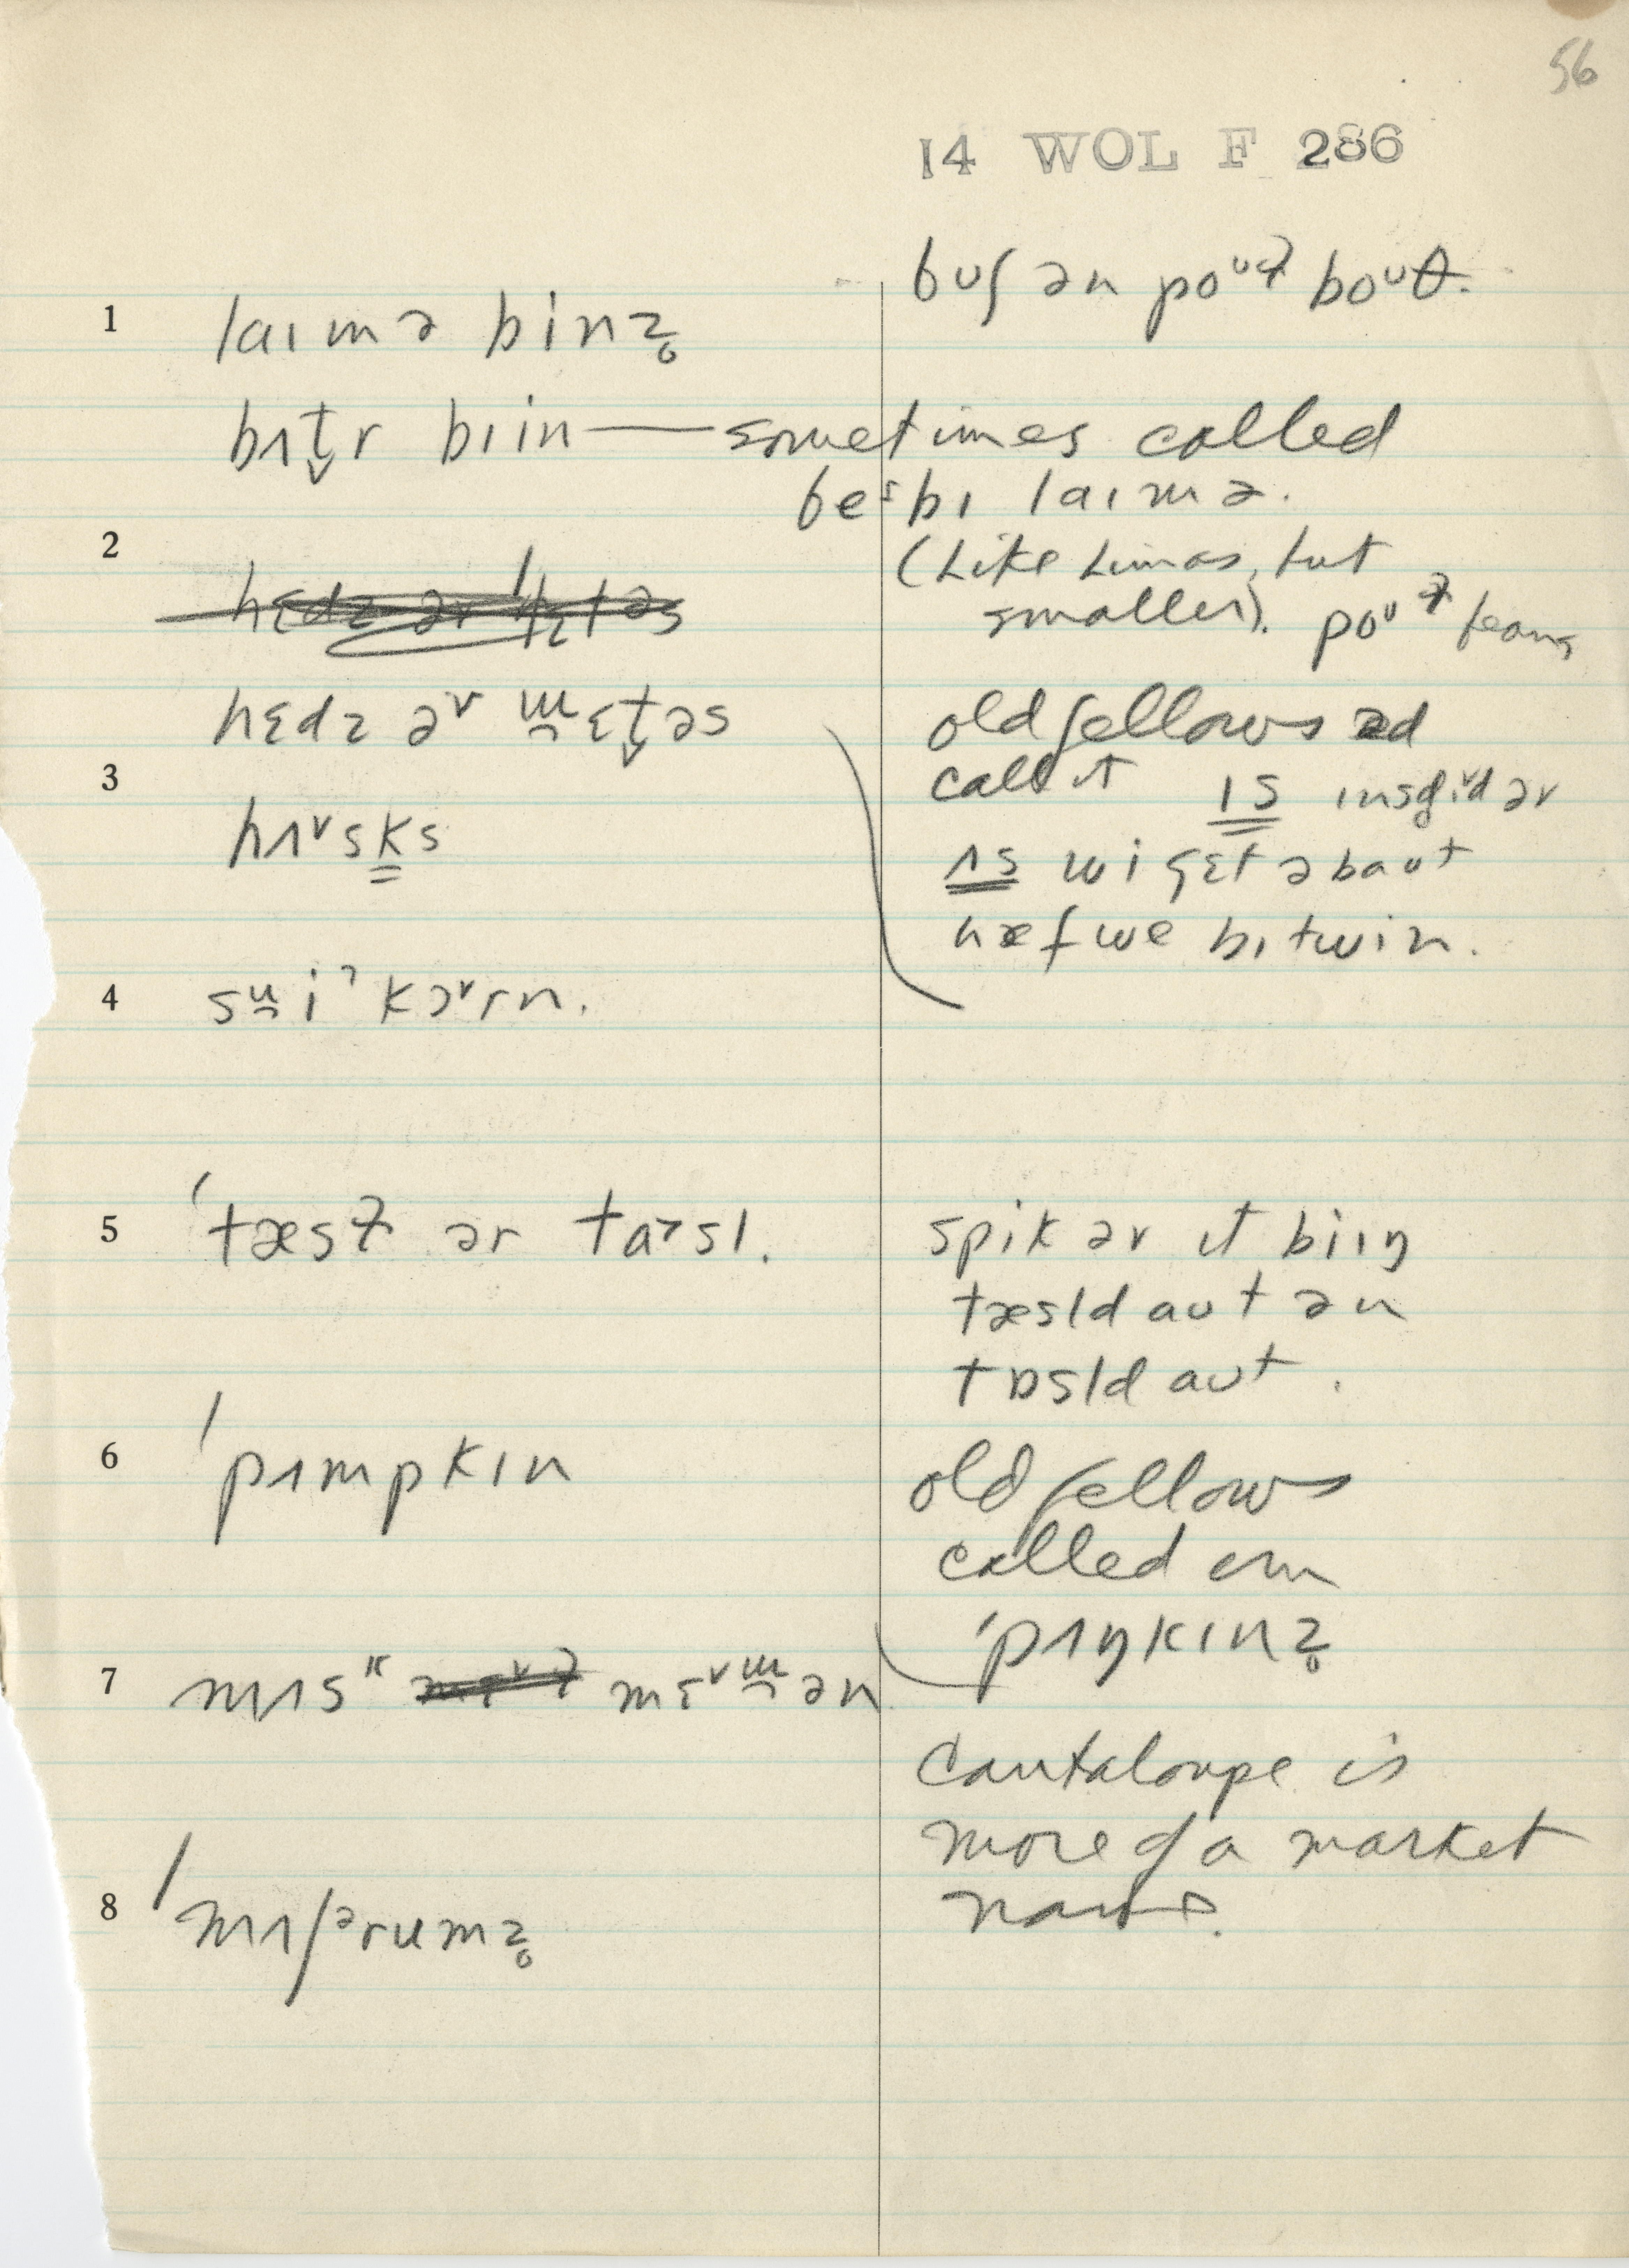 56
14 WOL F 286
bʊʃ ən poᶷɫ boᶷθ.
1 laɪmə binz̥
bʌt̬r biin — sometimes called
beᶦbɪ laɪmə.
2 (Like Limas, but
smaller). poᶷɫ beans
hɛdz əv lɛtəs
hɛdz əᵛ ɯ̯ɛt̬əs old fellows
call it ɪs
3 hʌᵛsks ʌs wi gɛt əbaʊt
hæf we bɪtwin.
4 sʉ̯iˀ kɔᵛrn.
5 ˈtæsɫ ər ta˃sl. spik əv ɪt biɪŋ
tæsld aʊt ən
tɒsld aʊt.
6 ˈpʌmpkɪn old fellows
called em
ˈpʌŋkɪnz̥
7 mʌsᵏ mɛᵛɯ̯ən
Cantaloupe is
more of a market
name.
8 ˈmʌʃᵊrumz̥